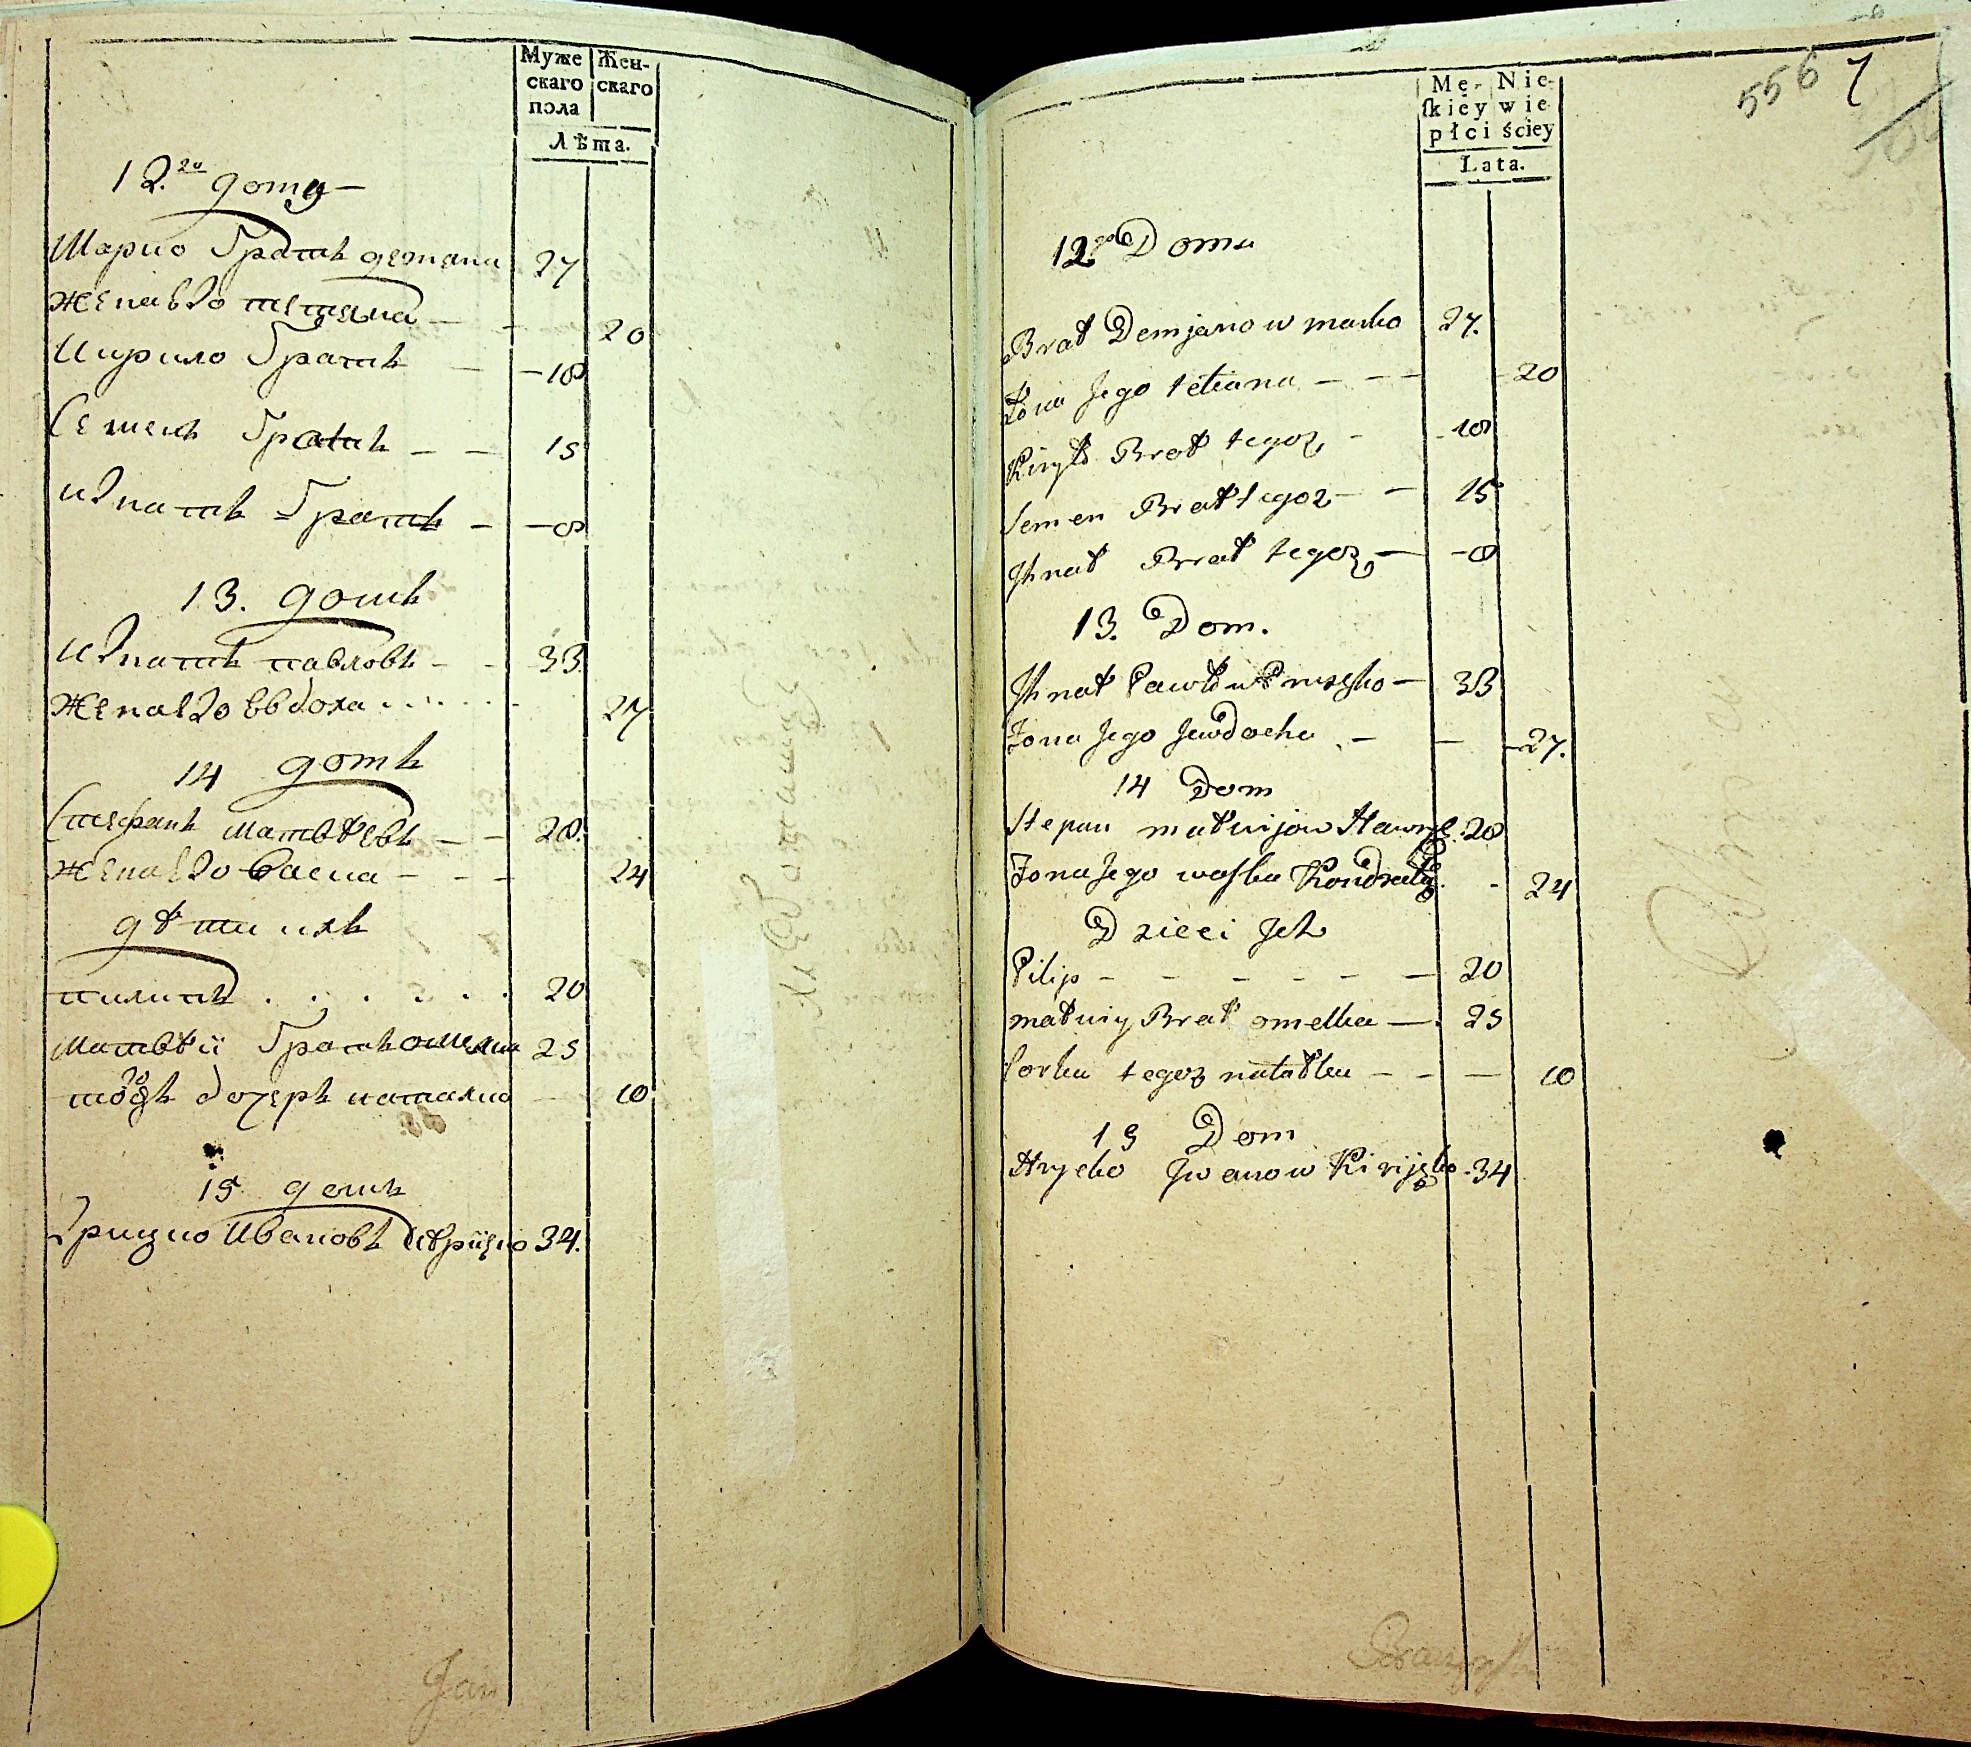 Муже Жен-
скаго скаго
пола
Лѣта.
12.го дому
Марко братъ демяна 27
жена его тетяна 20
Кирило братъ 18
Семенъ братъ 15
Игнатъ братъ 8
13. домъ
Игнатъ павловъ 33
жена его Евдоха 27
14 домъ
Стефанъ матвѣевъ 28
жена его васка 24
дѣти ихъ
пилипъ 20
матвѣй братъ омелка 25
того дочерь наталка 10
15 домъ
Грицко Ивановъ 34.
Jan
556 7
Mę- Nie-
skiey wie
płci ściey
Lata.
12go Domu
Brat Demjanow marko 27.
Żona Jego tetiana 20
Kiryło Brat tegoz 18
Semen Brat tegoz 15
Jhnat Brat tegoz 8
13. Dom.
Jhnat Pawłow 33
Żona Jego Jewdocha 27.
14 Dom
Stepan matwijow 28
Żona Jego waska 24
Dzieci Jch
Pilip 20
matwiy Brat omelka 25
Corka tegoz natałka 10
15 Dom
Hrycko Jwanow 34